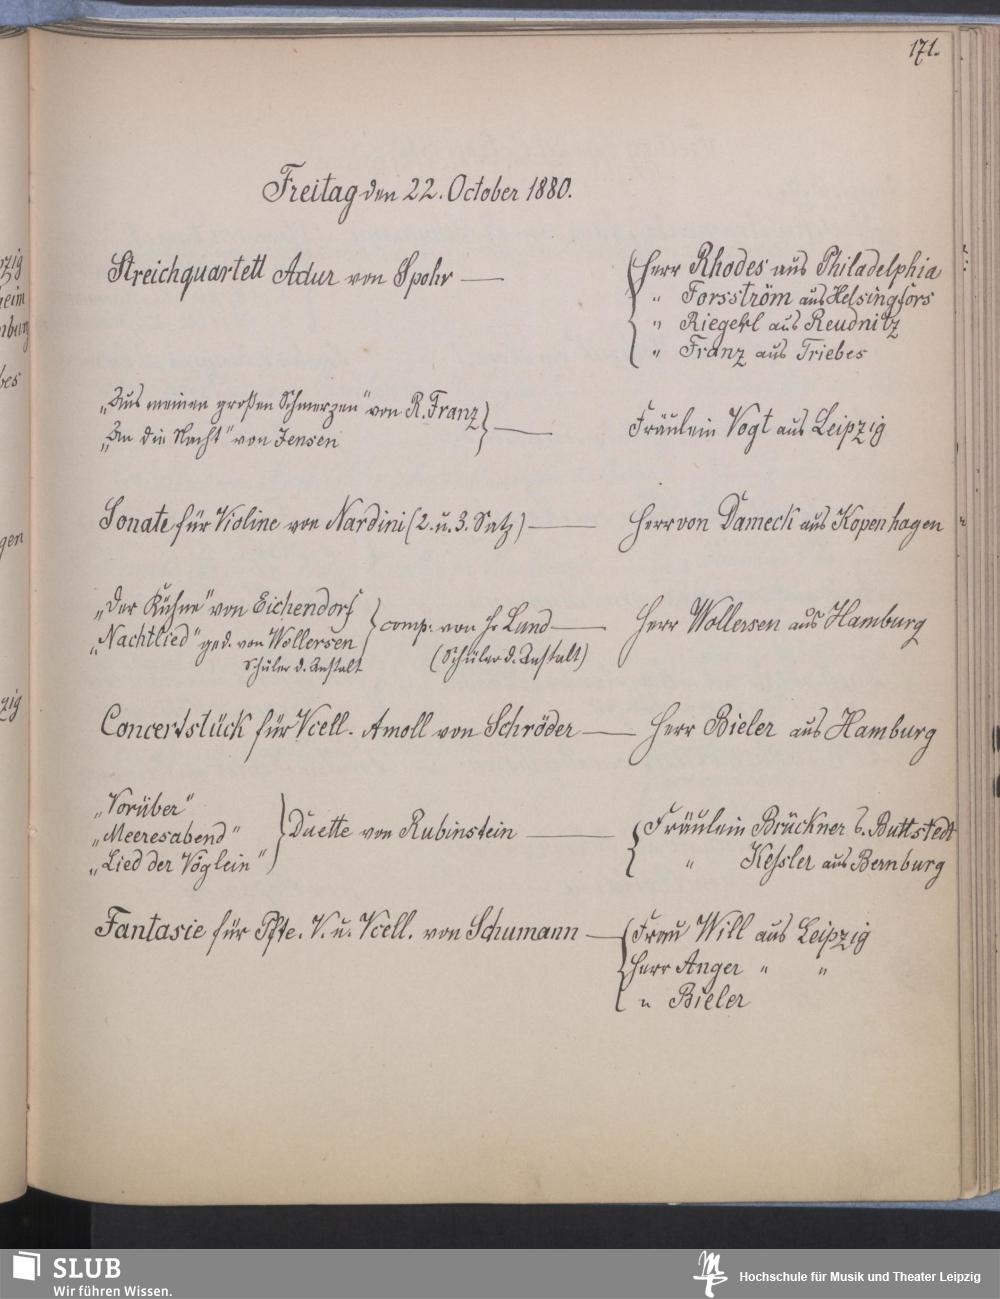 171.
Freitag den 22. October 1880.
Streichquartett Adur von Spohr — Herr Rhodes aus Philadelphia
" Forsström aus Helsingfors
" Riegerl aus Reudnitz
" Franz aus Triebes
„Aus meinen großen Schmerzen" von R. Franz
„An die Nacht" von Jensen — Fräulein Vogt aus Leipzig
Sonate für Violine von Nardini (2. u. 3. Satz) — Herr von Dameck aus Kopenhagen
„Der Kühne" von Eichendorf
„Nachtlied" ged. von Wollersen comp. von Hr Lund — Herr Wollersen aus Hamburg
Schüler d. Anstalt (Schüler d. Anstalt)
Concertstück für Vcell. Amoll von Schröder — Herr Bieler aus Hamburg
„Vorüber"
„Meeresabend" Duette von Rubinstein — Fräulein Brückner b. Buttstedt
„Lied der Vöglein" " Kessler aus Bernburg
Fantasie für Pfte. V. u. Vcell. von Schumann — Frau Will aus Leipzig
Herr Anger " "
" Bieler
zig
heim
nburg
bes
gen
zig
SLUB
Wir führen Wissen.
Hochschule für Musik und Theater Leipzig